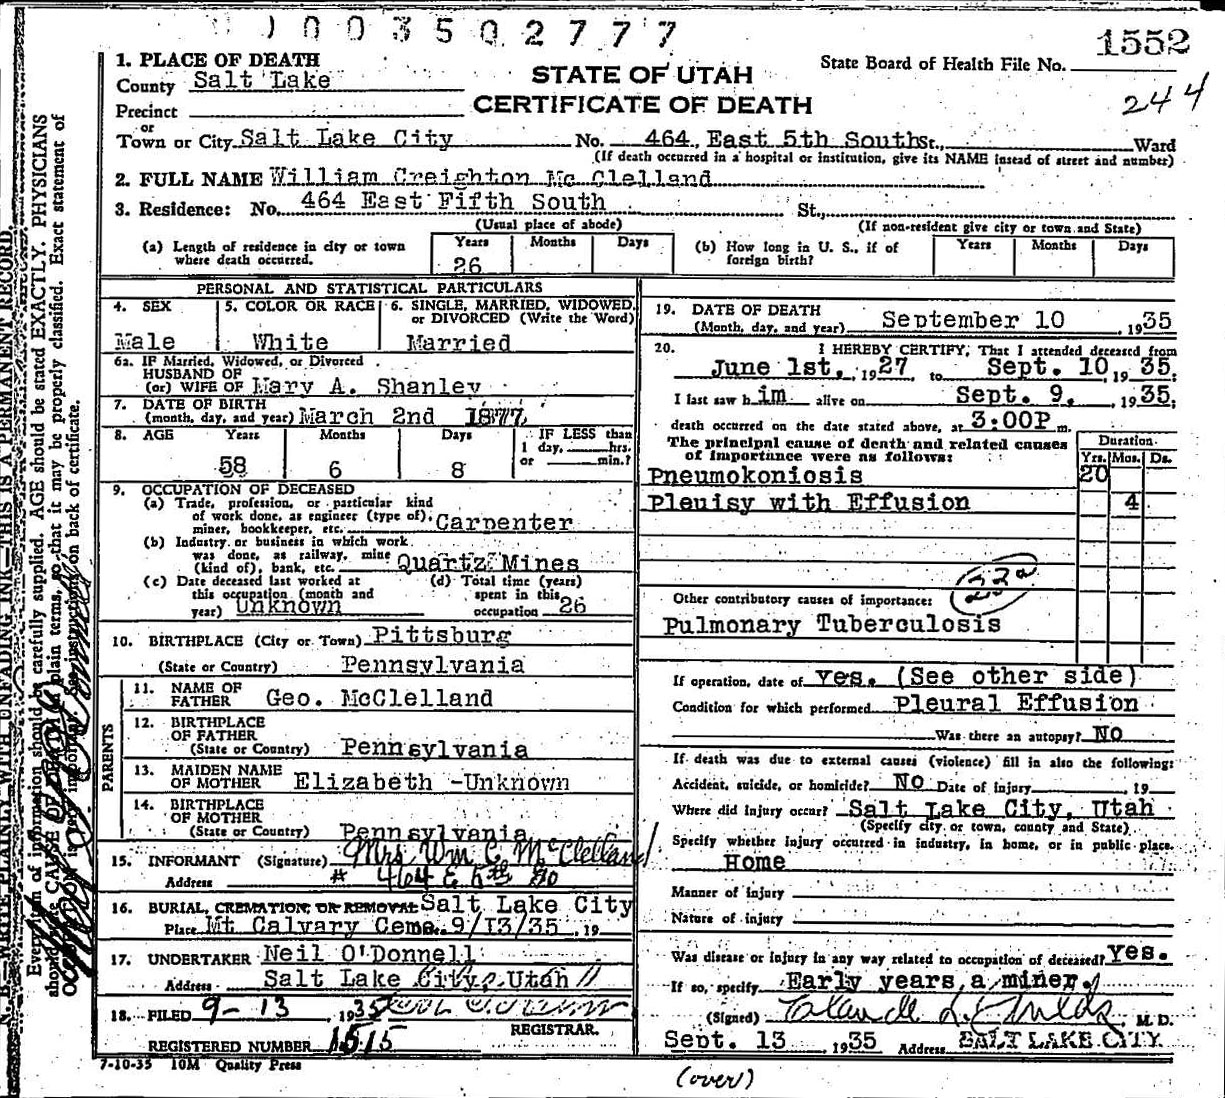 0 0 3 5 0 2 7 7 7
1552
244
State Board of Health File No.
STATE OF UTAH
CERTIFICATE OF DEATH
1. PLACE OF DEATH
County Salt Lake
Precinct
or
Town or City Salt Lake City No. 464, East 5th South St., Ward
(If death occurred in a hospital or institution, give its NAME instead of street and number)
2. FULL NAME William Creighton Mc Clelland
3. Residence: No. 464 East Fifth South St.,
(Usual place of abode) (If non-resident give city or town and State)
(a) Length of residence in city or town where death occurred. Years 26 Months Days
(b) How long in U. S., if of foreign birth? Years Months Days
PERSONAL AND STATISTICAL PARTICULARS
4. SEX Male
5. COLOR OR RACE White
6. SINGLE, MARRIED, WIDOWED, or DIVORCED (Write the Word) Married
6a. IF Married, Widowed, or Divorced
HUSBAND OF
(or) WIFE OF Mary A. Shanley
7. DATE OF BIRTH
(month, day, and year) March 2nd 1877
8. AGE Years 58 Months 6 Days 8 IF LESS than 1 day, hrs. or min.?
9. OCCUPATION OF DECEASED
(a) Trade, profession, or particular kind
of work done, as engineer (type of),
miner, bookkeeper, etc. Carpenter
(b) Industry or business in which work
was done, as railway, mine
(kind of), bank, etc. Quartz Mines
(c) Date deceased last worked at
this occupation (month and
year) Unknown
(d) Total time (years)
spent in this
occupation 26
10. BIRTHPLACE (City or Town) Pittsburg
(State or Country) Pennsylvania
PARENTS
11. NAME OF
FATHER Geo. McClelland
12. BIRTHPLACE
OF FATHER
(State or Country) Pennsylvania
13. MAIDEN NAME
OF MOTHER Elizabeth -Unknown
14. BIRTHPLACE
OF MOTHER
(State or Country) Pennsylvania
15. INFORMANT (Signature) Mrs Wm C. McClelland
Address # 464 E 5th So
16. BURIAL, CREMATION, OR REMOVAL Salt Lake City
Place Mt Calvary Ceme. 9/13/35 , 19
17. UNDERTAKER Neil O'Donnell
Address Salt Lake City, Utah
18. FILED 9-13 , 1935
REGISTRAR.
REGISTERED NUMBER 1515
7-10-35 10M Quality Press
19. DATE OF DEATH
(Month, day, and year) September 10 , 1935
20. I HEREBY CERTIFY, That I attended deceased from
June 1st, , 1927 to Sept. 10, 1935;
I last saw him alive on Sept. 9, , 1935;
death occurred on the date stated above, at 3:00P m.
The principal cause of death and related causes
of importance were as follows:
Duration
Yrs. Mos. Ds.
Pneumokoniosis 20
Pleuisy with Effusion 4
Other contributory causes of importance:
Pulmonary Tuberculosis
If operation, date of yes. (See other side)
Condition for which performed Pleural Effusion
Was there an autopsy? NO
If death was due to external causes (violence) fill in also the following:
Accident, suicide, or homicide? NO Date of injury , 19
Where did injury occur? Salt Lake City, Utah
(Specify city or town, county and State)
Specify whether injury occurred in industry, in home, or in public place.
Home
Manner of injury
Nature of injury
Was disease or injury in any way related to occupation of deceased? Yes.
If so, specify Early years a miner.
(Signed) M. D.
Sept. 13 , 1935 Address SALT LAKE CITY
(over)
WRITE PLAINLY WITH UNFADING INK—THIS IS A PERMANENT RECORD.
Every item of information should be carefully supplied. AGE should be stated EXACTLY. PHYSICIANS
should state CAUSE OF DEATH in plain terms, so that it may be properly classified. Exact statement of
on back of certificate.